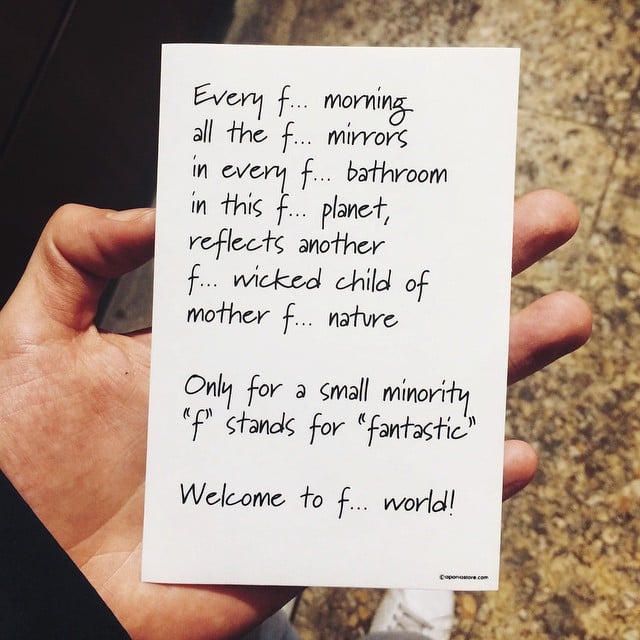 Every f... morning
all the f... mirrors
in every f... bathroom
in this f... planet,
reflects another
f... wicked child of
mother f... nature
Only for a small minority
"f" stands for "fantastic"
Welcome to f... world!